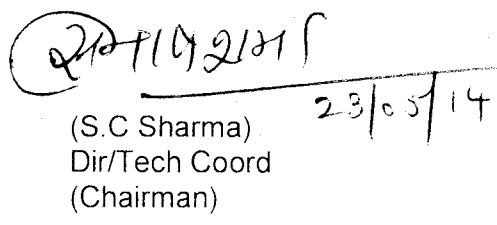 शर्मा
23/05/14
(S.C Sharma)
Dir/Tech Coord
(Chairman)